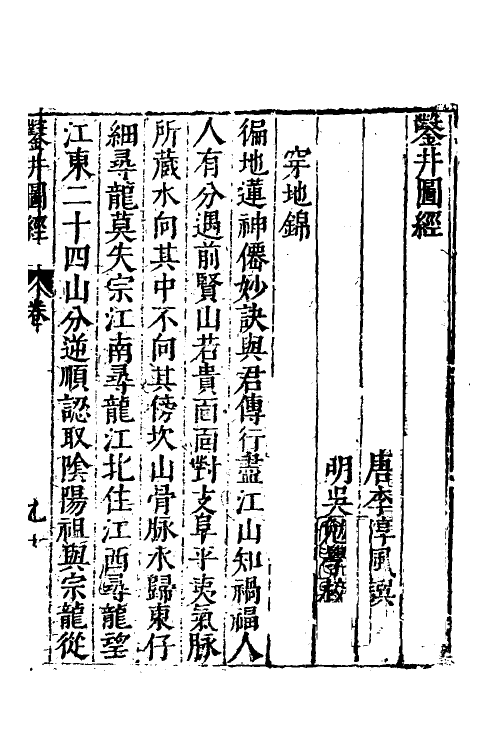 鑿井圖經
唐李淳風撰
明吳勉學校
穿地錦
徧地蓮神僊妙訣與君傳行盡江山知禍福人
人有分遇前賢山若貴面面對支阜平夷氣脉
所藏水向其中不向其傍坎山骨脉水歸東仔
細尋龍莫失宗江南尋龍江北住江西尋龍望
江東二十四山分逆順認取陰陽祖與宗龍從
鑿井圖經
卷